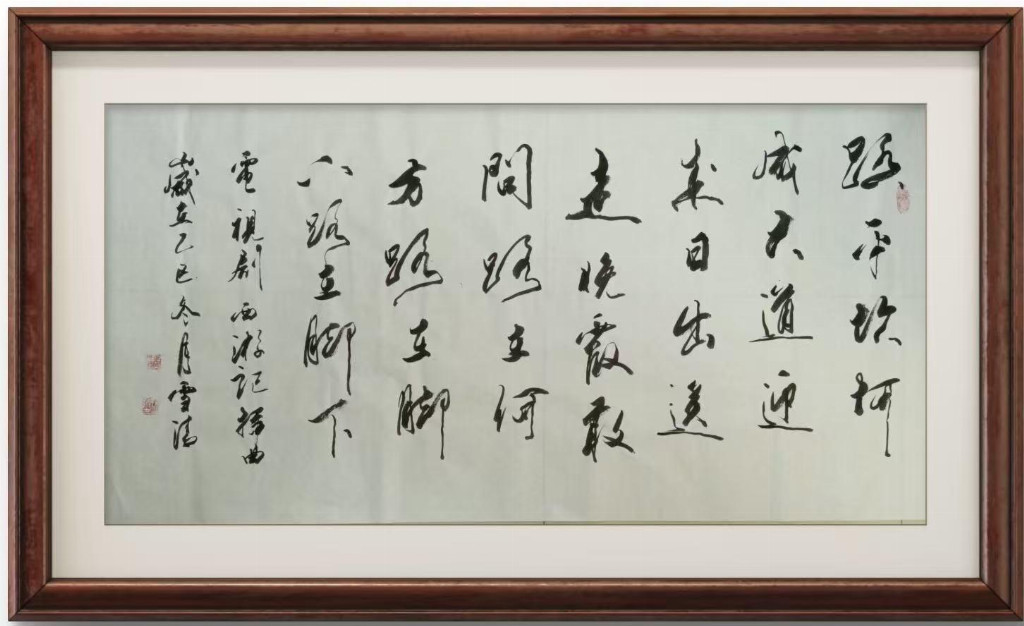 踏平坎坷
成大道迎
来日出送
走晚霞敢
問路在何
方路在脚
下路在脚下
電視剧西游記插曲
歲在乙巳冬月雪